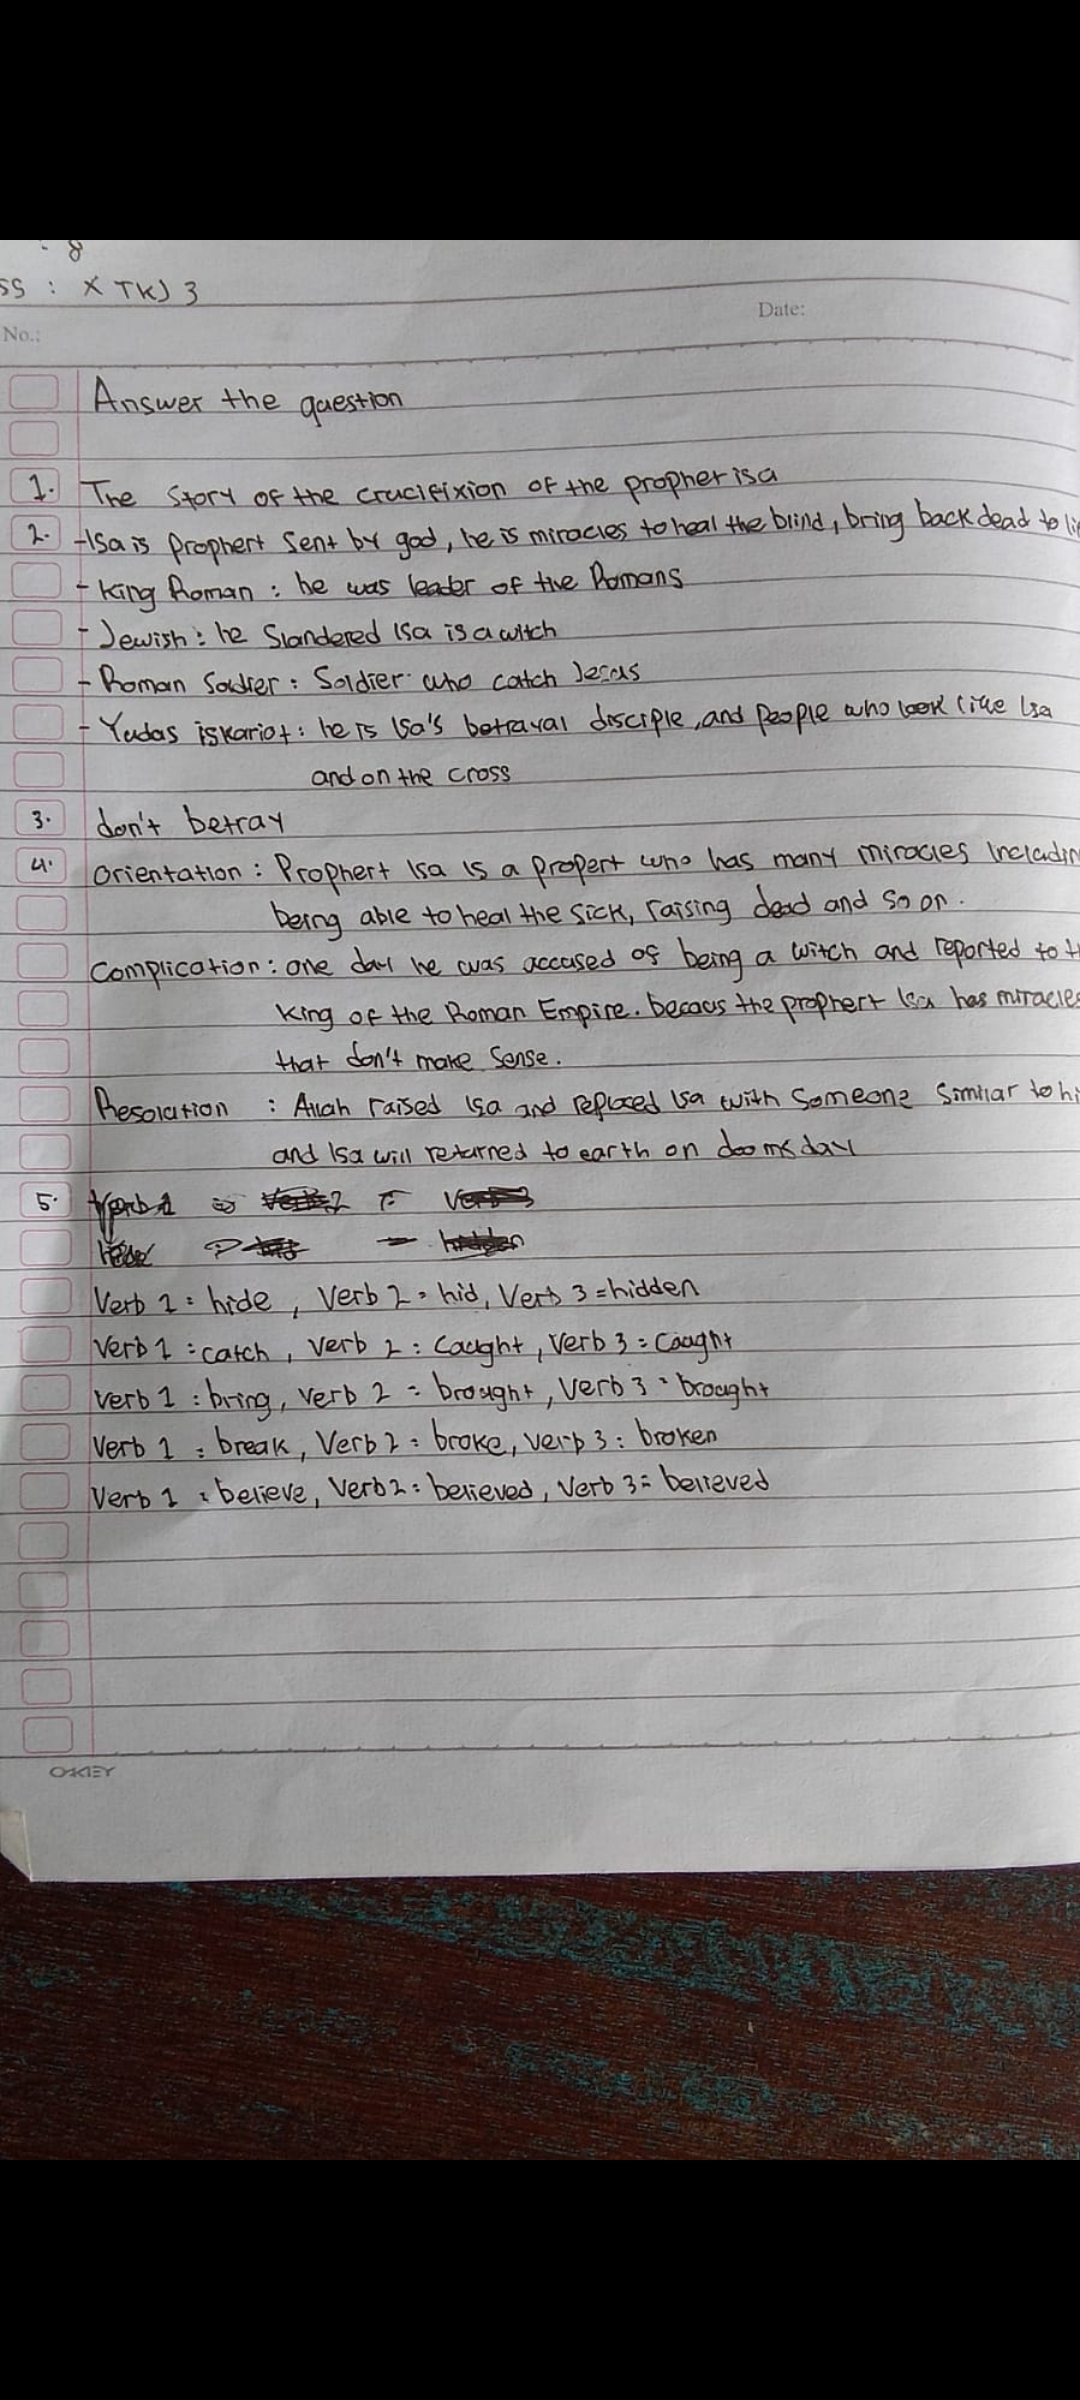 : 8
ss : X TKJ 3
Date:
No.:
Answer the question
1. The Story of the crucifixion of the propher isa
2. -Isa is Prophert Sent by god, he is miracles to heal the blind, bring back dead to li
- King Roman : he was leader of the Romans
- Jewish : he Slandered Isa is a witch
- Roman Soldier : Soldier who catch Jesus
- Yudas iskariot : he is Isa's betrayal disciple, and people who look like Isa
and on the cross
3. don't betray
4. Orientation : Prophert Isa is a propert who has many miracles includin
being able to heal the sick, raising dead and so on.
Complication : one day he was accused of being a witch and reported to th
king of the Roman Empire. becaus the prophert Isa has miracles
that don't make sense.
Resolution : Allah raised Isa and replaced Isa with someone similar to hi
and Isa will returned to earth on doomsday
5.
Verb 1 : hide , Verb 2 = hid, Verb 3 = hidden
Verb 1 : catch , verb 2 : Caught , verb 3 : Caught
Verb 1 : bring, verb 2 = brought, Verb 3 = brought
Verb 1 : break, Verb 2 : broke, verb 3 : broken
Verb 1 : believe, Verb 2 : believed, Verb 3 = believed
OAKLEY